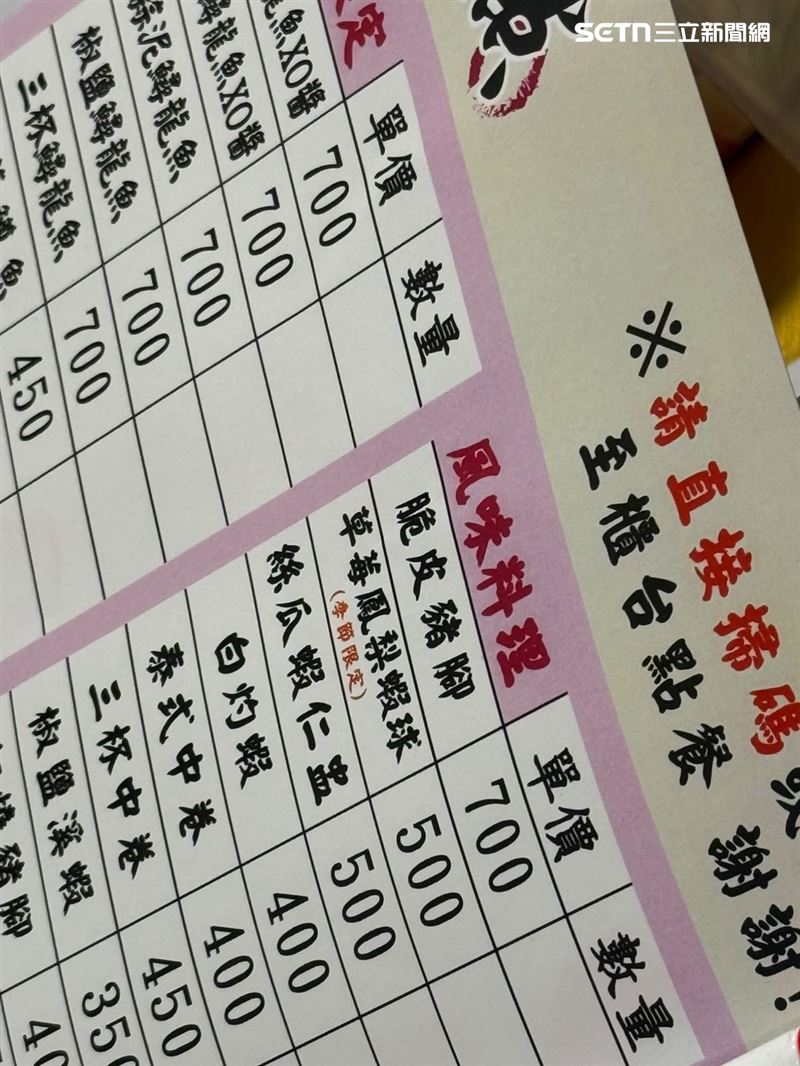 SETN三立新聞網
※請直接掃碼或
至櫃台點餐
謝謝!
定 單價 數量
龍魚XO醬 700
鱘龍魚XO醬 700
泥鱘龍魚 700
椒鹽鱘龍魚 700
三杯鱘龍魚 700
魚 450
風味料理 單價 數量
脆皮豬腳 700
草莓鳳梨蝦球 500
(季節限定)
絲瓜蝦仁盅 500
白灼蝦 400
泰式中卷 400
三杯中卷 450
椒鹽溪蝦 350
豬腳 40